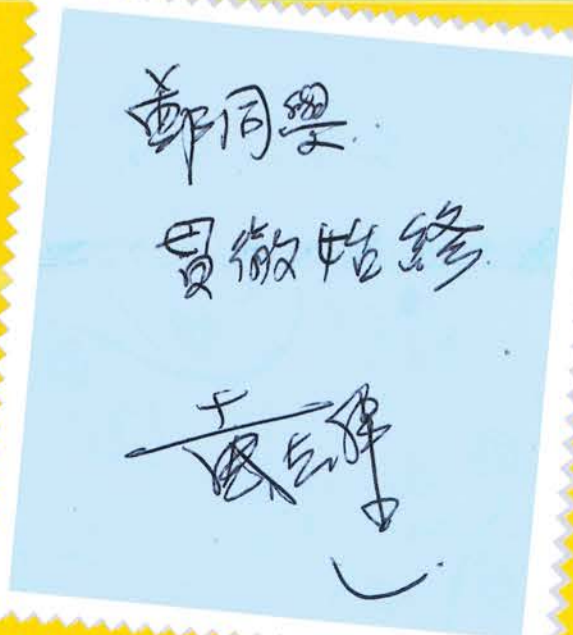 鄭同學
貫徹始終